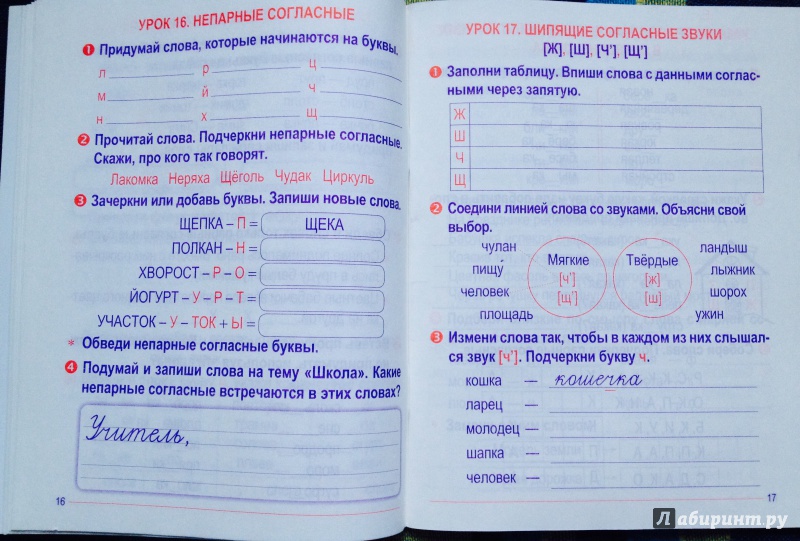 УРОК 16. НЕПАРНЫЕ СОГЛАСНЫЕ
1 Придумай слова, которые начинаются на буквы.
л р ц
м й ч
н х щ
2 Прочитай слова. Подчеркни непарные согласные.
Скажи, про кого так говорят.
Лакомка Неряха Щёголь Чудак Циркуль
3 Зачеркни или добавь буквы. Запиши новые слова.
ЩЕПКА – П = ЩЕКА
ПОЛКАН – Н =
ХВОРОСТ – Р – О =
ЙОГУРТ – У – Р – Т =
УЧАСТОК – У – ТОК + Ы =
* Обведи непарные согласные буквы.
4 Подумай и запиши слова на тему «Школа». Какие
непарные согласные встречаются в этих словах?
Учитель,
16
УРОК 17. ШИПЯЩИЕ СОГЛАСНЫЕ ЗВУКИ
[Ж], [Ш], [Ч’], [Щ’]
1 Заполни таблицу. Впиши слова с данными соглас-
ными через запятую.
Ж
Ш
Ч
Щ
2 Соедини линией слова со звуками. Объясни свой
выбор.
чулан Мягкие Твёрдые ландыш
пищу́ [ч’] [ж] лыжник
человек [щ’] [ш] шорох
площадь ужин
3 Измени слова так, чтобы в каждом из них слышал-
ся звук [ч’]. Подчеркни букву ч.
кошка — кошечка
ларец —
молодец —
шапка —
человек —
17
Лабиринт.ру